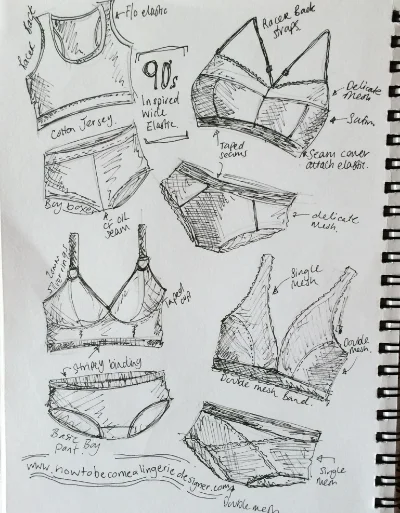 F/o elastic
racer back
Racer Back
straps.
90s
Inspired
Wide
Elastic.
Delicate
mesh
Satin
Cotton Jersey.
Taped
seams
Seam cover
attach elastic.
Boy boxer
seam
delicate
mesh.
Single
mesh
Double
mesh.
Double mesh Band.
Stripey binding
Basic Boy
pant
www.howtobecomealingeriedesigner.com
Single
mesh
Double mesh